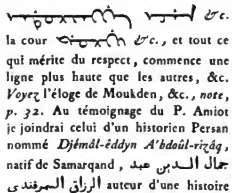 &c.
la cour &c., et tout ce
qui mérite du respect, commence une
ligne plus haute que les autres, &c.
Voyez l'éloge de Moukden, &c., note,
p. 32. Au témoignage du P. Amiot
je joindrai celui d'un historien Persan
nommé Djémâl-êddyn A'bdoûl-rizâq,
natif de Samarqand, جمال الدين عبد
الرزاق السمرقندى auteur d'une histoire